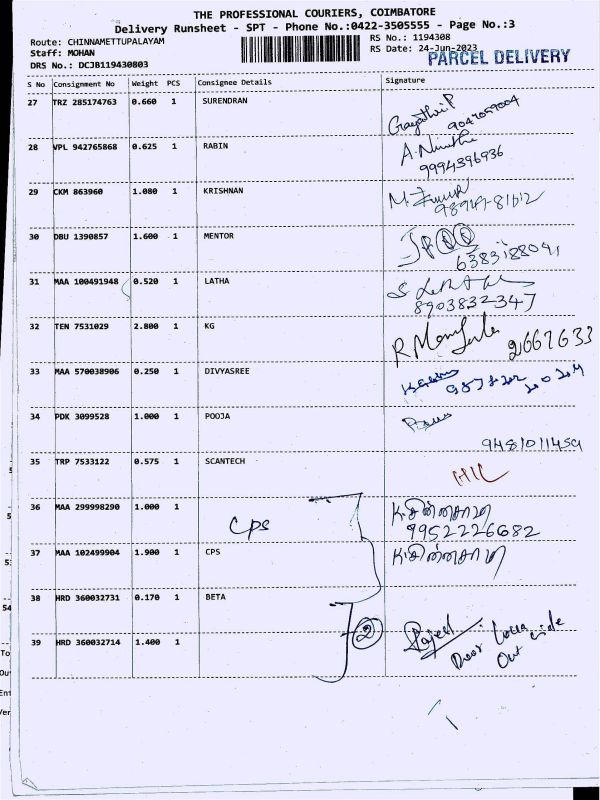 THE PROFESSIONAL COURIERS, COIMBATORE
Delivery Runsheet - SPT - Phone No.:0422-3505555 - Page No.:3
Route: CHINNAMETTUPALAYAM
RS No.: 1194308
Staff: MOHAN
RS Date: 24-Jun-2023
DRS No.: DCJB119430803
PARCEL DELIVERY
S No Consignment No Weight PCS Consignee Details Signature
27 TRZ 285174763 0.660 1 SURENDRAN
28 VPL 942765868 0.625 1 RABIN
9994396936
29 CKM 863960 1.080 1 KRISHNAN
30 DBU 1390857 1.600 1 MENTOR
31 MAA 100491948 0.520 1 LATHA
8903832347
32 TEN 7531029 2.800 1 KG
2667633
33 MAA 570038906 0.250 1 DIVYASREE
34 PDK 3099528 1.000 1 POOJA
9481011459
35 TRP 7533122 0.575 1 SCANTECH
36 MAA 299998290 1.000 1
CPS
9952226682
37 MAA 102499904 1.900 1 CPS
38 HRD 360032731 0.170 1 BETA
2
39 HRD 360032714 1.400 1
Door
Out side